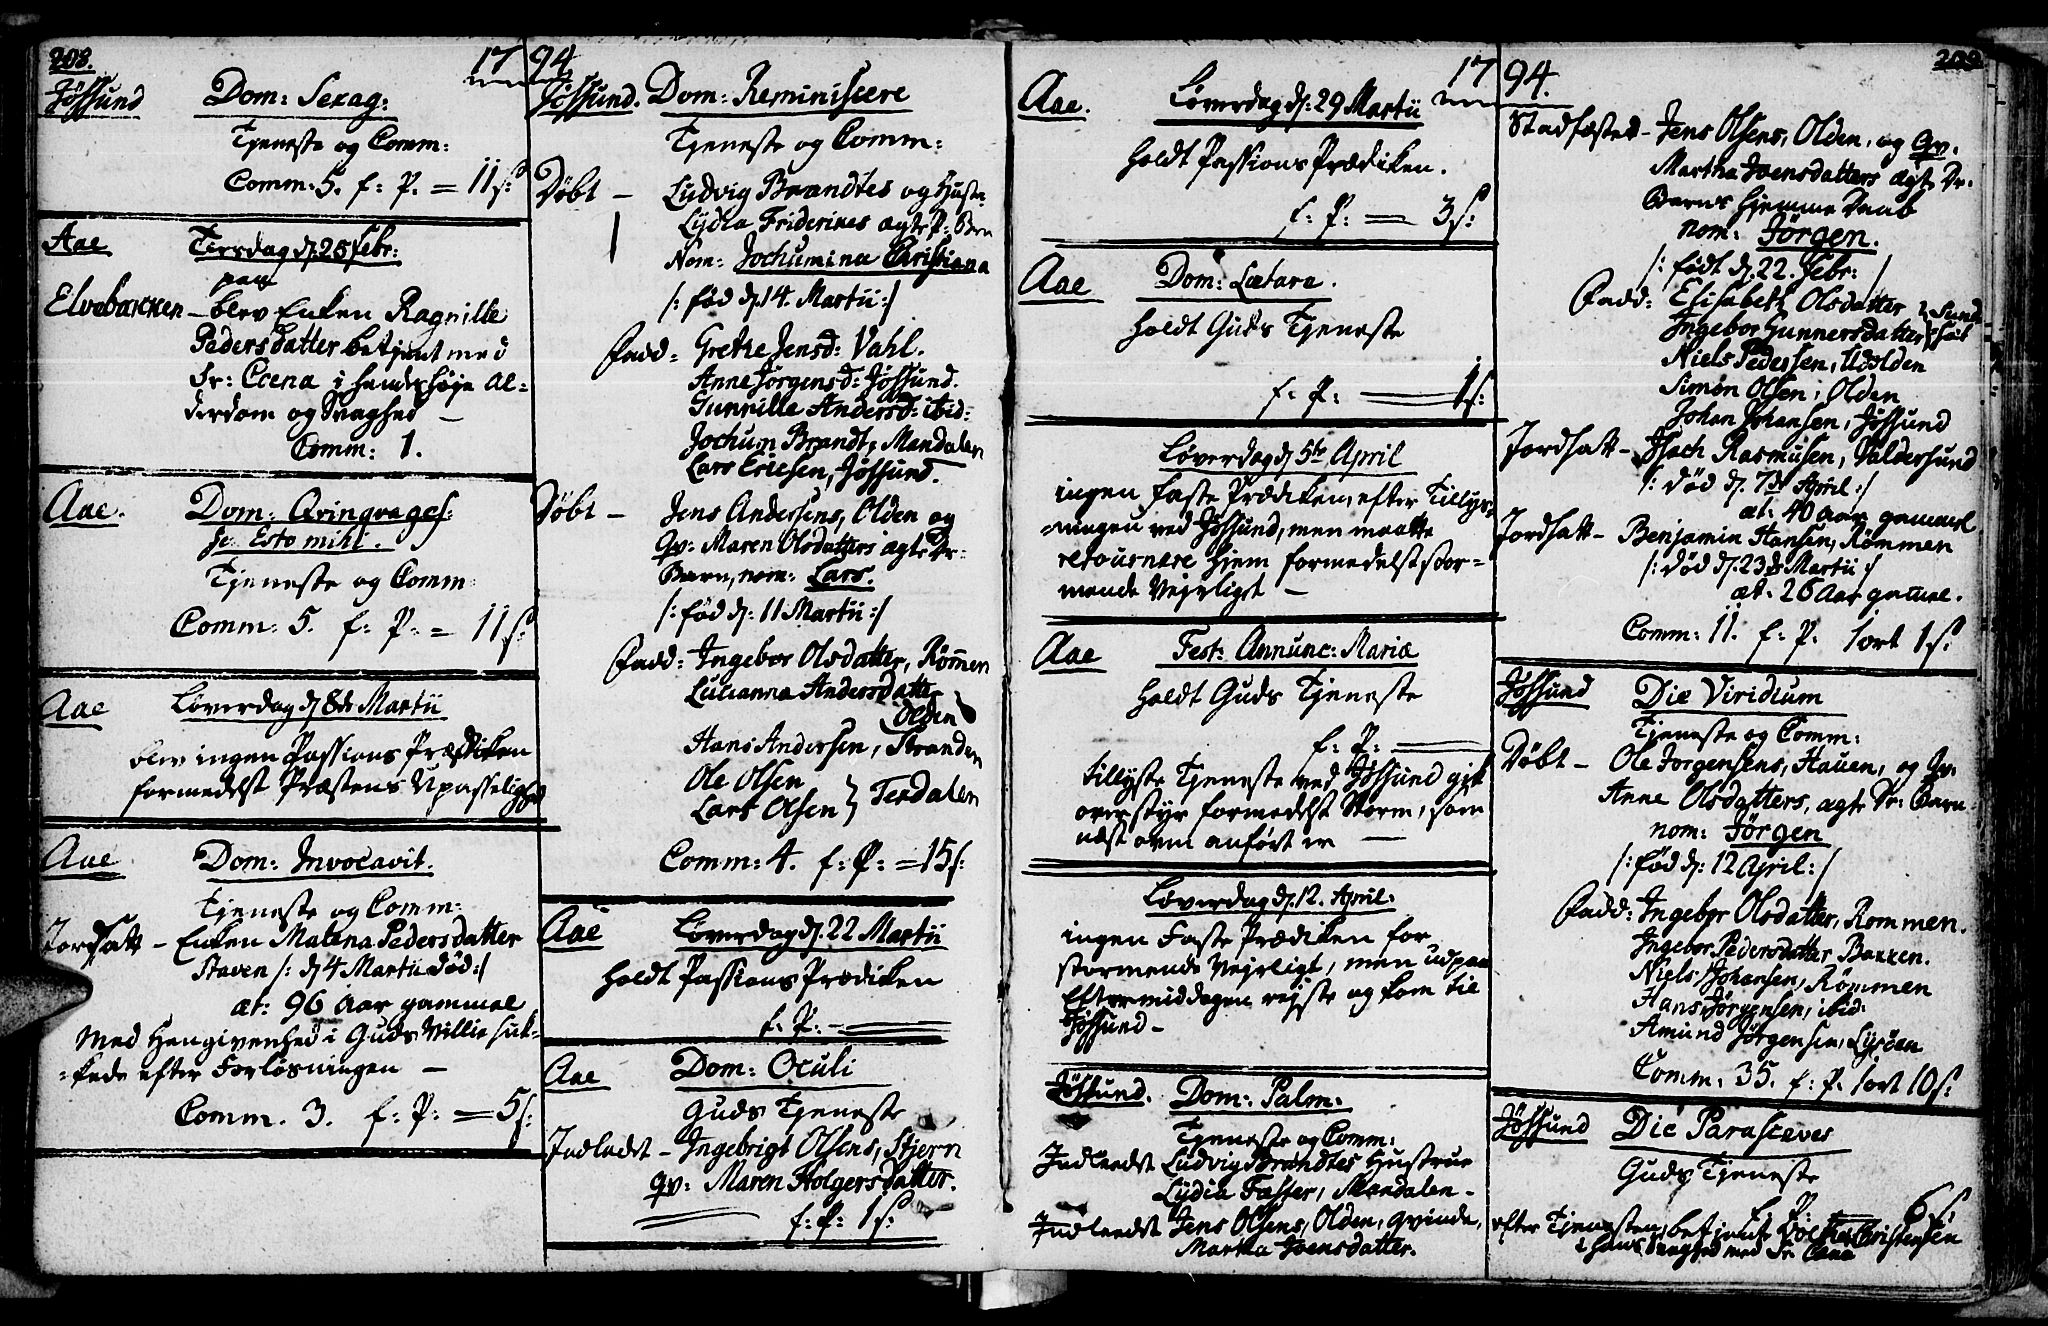 208.
17 94
Jössund Dom: Sexag:
Tjeneste og Comm:
Comm: 5. f: P. = 11 s:
Aae Tirsdag d. 25 Febr:
paa
Elvebakken – blev Enken Ragnille
Pedersdatter betjent med
Sr: Coena i hendes høje Al-
derdom og Svaghed –
Comm: 1.
Aae. Dom: Qvinqvages:
Esto mihi.
Tjeneste og Comm:
Comm: 5. f: P. = 11 s:
Aae Løverdag d 8de Martii
blev ingen Passions Prædiken
formedelst Præstens Upasselighed
Aae Dom: Invocavit.
Tjeneste og Comm:
Jordsatt – Enken Malena Pedersdatter
Staven /: d 4 Martii død :/
æt: 96 Aar gammel
Med Hengivenhed i Guds Villie suk-
-kede efter Forløsningen –
Comm. 3. f: P: = 5 s:
Jössund. Dom: Reminiscere
Tjeneste og Comm:
Døbt – Ludvig Brandtes og Hustr:
Lydia Friderines ægte P: Barn
Nom: Jochumina Christiana
/: fød d. 14. Martii :/
Fadd: Grethe Jensd: Vahl.
Anne Jørgensd: Jössund.
Gunnille Andersd: ibid:
Jochum Brandt, Mandalen
Lars Ericsen, Jössund.
Døbt – Jens Andersens, Olden og
Qv: Maren Olsdatters ægte Dr:
Barn, nom: Lars.
/: fød d: 11 Martii :/
Fadd: Ingebor Olsdatter, Römen
Lucianna Andersdatter
Olden
Hans Andersen, Stranden
Ole Olsen
Lars Olsen } Terdalen
Comm: 4. f: P: = 15 s:
Aae Løverdag d. 22 Martii
holdt Passions Prædiken
f: P: –
Aae Dom: Oculi
Guds Tjeneste
Indledet – Ingebrigt Olsens, Stjern
qv: Maren Holgersdatter.
f: P: 1 s:
209
17 94.
Aae. Løverdag d: 29 Martii
holdt Passions Prædiken.
f: P: = 3 s:
Aae Dom: Lætare.
holdt Guds Tjeneste
f: P: — 1 s:
Løverdag d 5te April
ingen Faste Prædiken, efter Tillys-
-ningen ved Jössund, men maatte
retournere hjem formedelst stor-
mende Vejrliget –
Aae Fest: Annunc: Mariæ
holdt Guds Tjeneste
f: P: —
tillyste Tjeneste ved Jössund gik
over styr formedelst Storm, som
næst oven anført er —
Løverdag d. 12. April:
ingen Faste Prædiken for
stormende Vejrligt, men udpaa
Eftermiddagen rejste og kom til
Jössund –
Jössund. Dom: Palm:
Tjeneste og Comm:
Indleedt Ludvig Brandtes Hustrue
Lydia Faster, Mandalen –
Indleedt Jens Olsens, Olden, qvinde,
Martha Joensdatter.
Stadfæsted – Jens Olsens, Olden, og Qv.
Martha Joensdatters ægte Dr:
Barns hjemme Daab
nom: Jörgen.
/: født d. 22. Febr: /
Fadd: Elisabeth Olsdatter
Ingebor Gunnersdatter
Niels Pedersen, Uvolden
Simon Olsen, Olden
Johan Johansen, Jössund
Jordsatt – Isach Rasmusen, Valdersund
/: død d. 7de April :/
æt: 40 aar gammel
Jordsatt – Benjamin Hansen, Römmen
/: død d. 23de Martii :/
æt: 26 Aar gam̄el.
Comm: 11. f: P. 1ort 1 s:
Jössund Die Viridium
Tjeneste og Comm:
Døbt – Ole Jørgensens, Hauen, og Qv.
Anne Olsdatters, ægte Dr: Barn
nom: Jörgen
/: fød d: 12 April: /
Fadd: Ingebor Olsdatter, Rommen.
Ingebor Pedersdatter Bakken.
Niels Johansen, Römmen
Hans Jörgensen, ibid:
Amund Jörgensen, Lysöen
Comm: 35. f: P. 1ort 10 s:
Jössund Die Parasceves
Guds Tjeneste
f: P. — 6 s:
efter Tjenesten, betjente Christensen
i hans Svaghed med Sr. Cæna